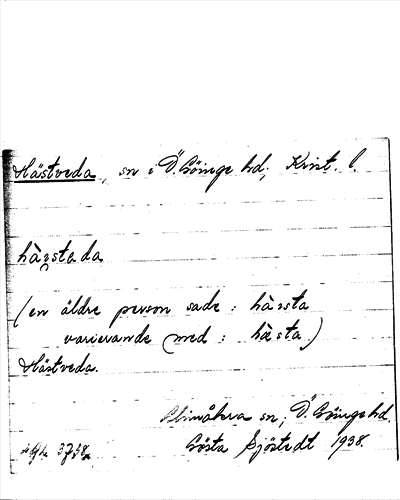 Hästveda, sn i Ö. Göinge hd; Krist. l.
hàʒstada
(en äldre person sade: hàʒsta
varierande med: hàsta.)
Hästveda.
Glimåkra sn, Ö. Göinge hd.
Gösta Sjöstedt 1938.